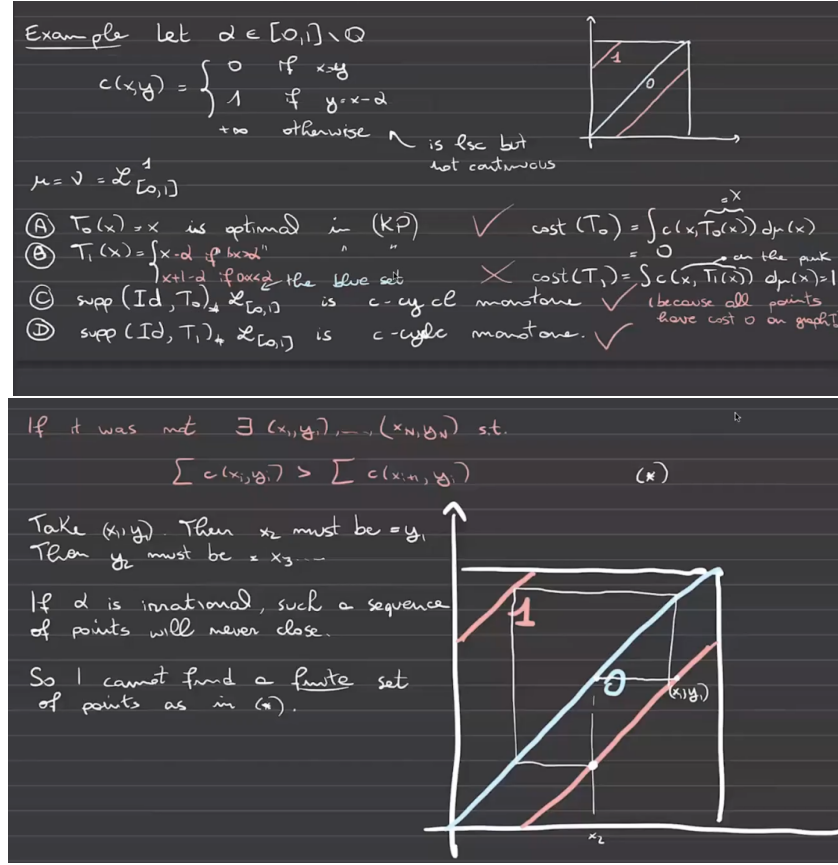 Example Let α ∈ [0,1] \ Q
c(x,y) = { 0 if x=y
1 if y=x-α
+∞ otherwise
is lsc but
not continuous
1
0
μ = ν = ℒ¹[0,1]
(A) T₀(x) = x is optimal in (KP) ✓ cost(T₀) = ∫ c(x, T₀(x)) dμ(x)
=x
= 0
(B) T₁(x) = { x-α if 1≥x≥α " " "
x+1-α if 0≤x<α the blue set ✗ cost(T₁) = ∫ c(x, T₁(x)) dμ(x) = 1
on the pink
(C) supp (Id, T₀)_* ℒ[0,1] is c-cycl monotone ✓ (because all points
have cost 0 on graph T
(D) supp (Id, T₁)_* ℒ[0,1] is c-cycl monotone. ✓
If it was not ∃ (x₁,y₁), ..., (x_N,y_N) s.t.
∑ c(xᵢ,yᵢ) > ∑ c(xᵢ₊₁, yᵢ) (*)
Take (x₁,y₁). Then x₂ must be = y₁
Then y₂ must be = x₃ ...
If α is irrational, such a sequence
of points will never close.
So I cannot find a finite set
of points as in (*).
1
0
(x₁,y₁)
x₂